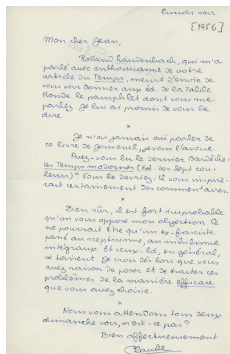 lundi soir
[1956]
Mon cher Jean,
Roland Laudenbach, qui m'a
parlé avec enthousiasme de votre
article du Temps, meurt d'envie de
vous voir donner aux éd. de la Table
Ronde le pamphlet dont vous me
parlez. Je lui ai promis de vous le
dire.
*
Je n'ai jamais ouï parler de
ce livre de je l'avoue
Avez-vous lu le dernier Bardèche:
les Temps modernes (Ed. des Sept cou-
leurs)? Vous le devriez. Il vous inspi-
rerait certainement des commentaires.
*
Bien sûr, il est fort improbable
qu'on vous oppose mon objection. Ce
ne pourrait être qu'un ex-fasciste
passé au scepticisme, au nihilisme
intégraux. Et ceux-là, en général,
se taisent. Je crois dès lors que vous
avez raison de poser et de traiter ces
problèmes de la manière efficace
que vous avez choisie.
*
Nous vous attendons tous deux
dimanche soir, n'est-ce pas?
Bien affectueusement
Claude